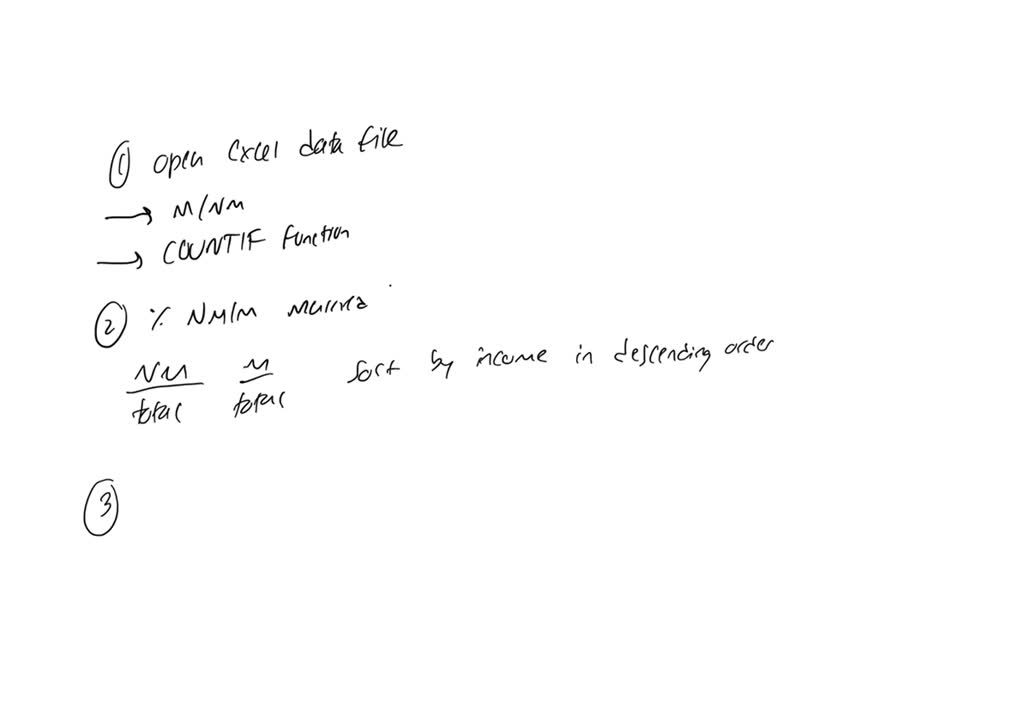 ① open excel data file
→ M/NM
→ COUNTIF function
② % NM/M married
NM/total M/total sort by income in descending order
③